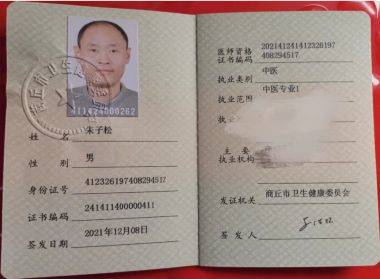 商丘市卫生
411424000262
姓 名 朱子松
性 别 男
身份证号 412326197408294517
证书编码 241411400000411
签发日期 2021年12月08日
医师资格 202141241412326197
证书编码 408294517
执业类别 中医
执业范围 中医专业1
主 要
执业机构
发证机关 商丘市卫生健康委员会
签 发 人